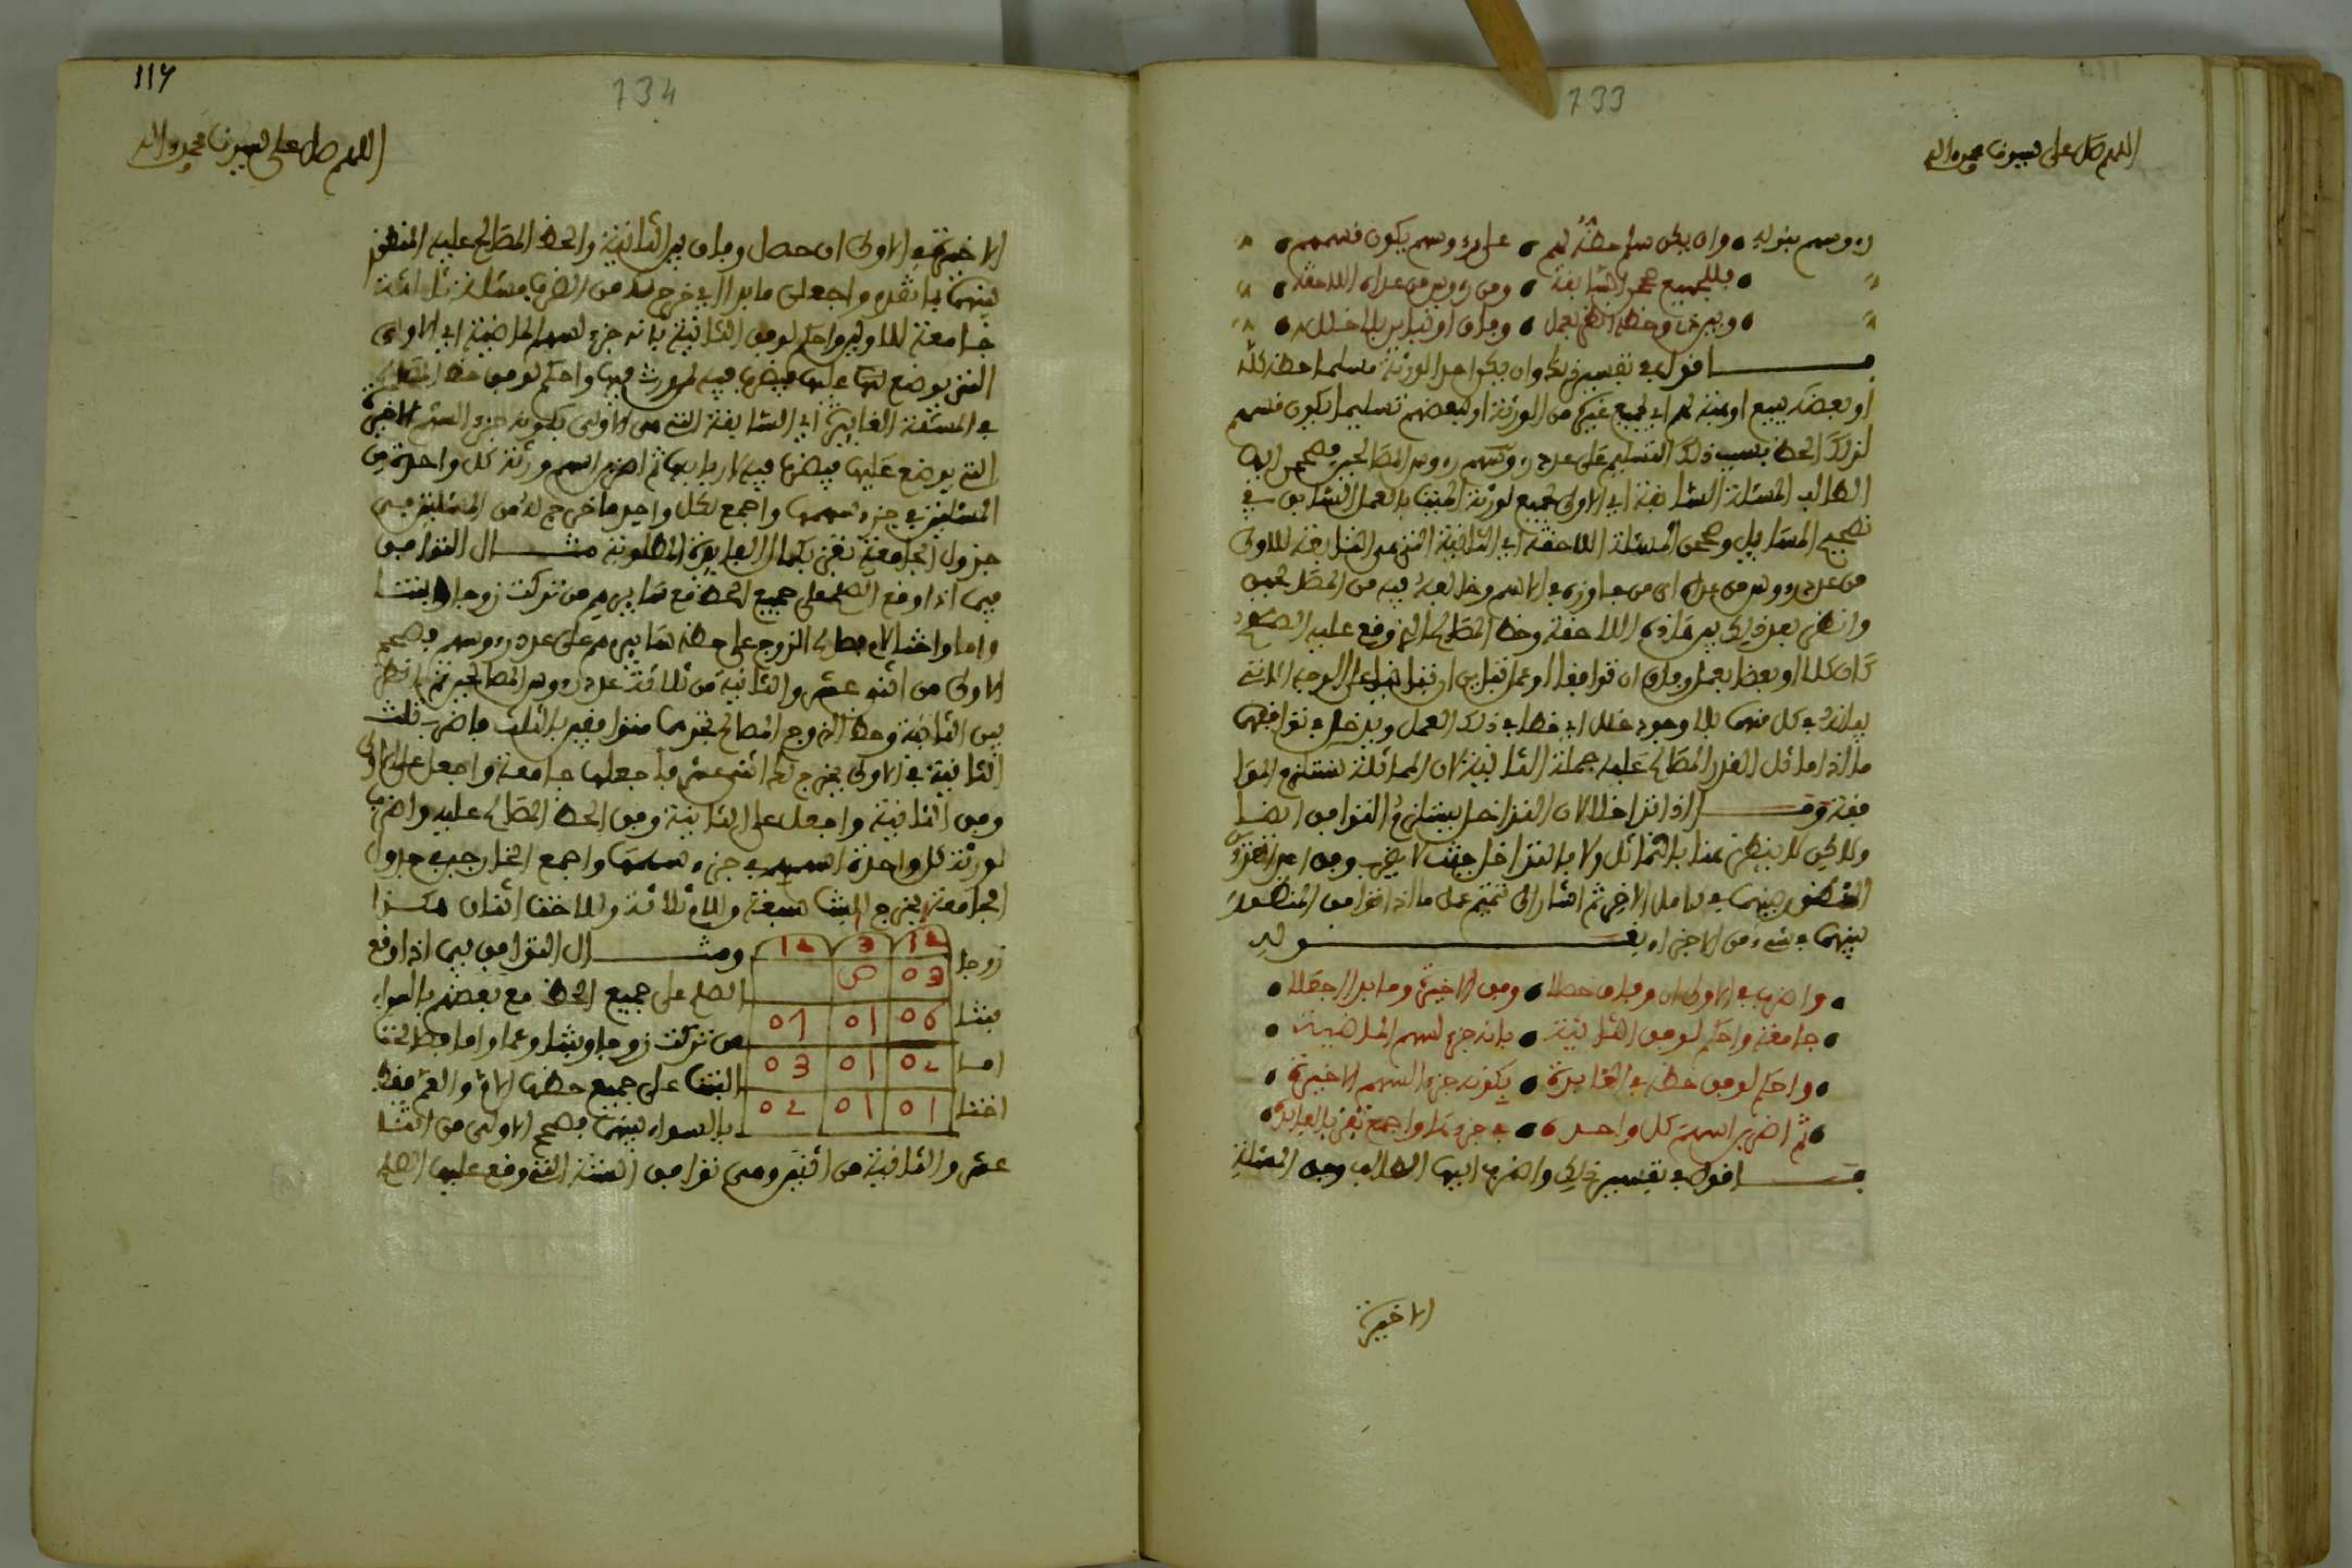 733
اللهم صل على سيدنا محمد وآله
رءوسهم بنوله • وان يكن سلم حظه لهم • على رءوسهم يكون قسمهم •
• بللجميع صحح السابقة • ومن رءوس من عداه اللاحقة •
• وبين ذي وحظه انظر بعمل • وفاق او تباين بلا خلل •
اقول في تفسير ذلك وان يكن احد الورثة مسلما حظه كله
او بعضه ببيع او هبة لهم اي لجميع غيره من الورثة او لبعضهم تسليما يكون قسمهم
لذلك الحظ بسبب ذلك التسليم على عدد رءوسهم رءوس المصالحين فصحح ايها
الطالب المسئلة السابقة اي الاولى لجميع لورثة الميت بالعمل السابق في
تصحيح المسايل وصحح المسئلة اللاحقة اي الثانية التي هي التابعة للاولى
من عدد رءوس من عداه اي من جاوزه في الاسم وخالعه فيه من المصالحين
وانظر بعد ذلك بين هذه اللاحقة وحظ المصالح الذي وقع عليه الصلح
كان كلا او بعضا بعمل وفاق ان توافقا او عمل تباين ان تباينا على الوجه المار
بيانه في كل منهما بلا وجود خلل اي خطا في ذلك العمل ويدخل في توافقهما
ما اذا ماثل القدر المصالح عليه جملة الثانية لان المماثلة تستلزم الموا
فقة و اذا تداخلا لان التداخل يستلزم التوافق ايضا
ولاكن لا ينظر هنا بالتماثل ولا بالتداخل حيث لا يضرب وفق احد العددين
المنظور بينهما في كامل الاخر ثم اشار الى تتميم عمل ما اذا توافق المنظور
بينهما في شيء من الاجزاء بقوله
• واضرب في الاولى ان وفاق حصلا • وفق الاخيرة وما بدا اجعلا •
• جامعة واحكم لوفق الثانية • بانه جزء لسهم الماضية •
• واحكم لوفق حظه في الغابرة • بكونه جزء السهم الاخيرة •
• ثم اضربن اسهم كل واحده • في جزءها واجمع تفز بالفايدة •
اقول في تفسير ذلك واضرب ايها الطالب وفق المسئلة
الاخيرة
117
734
اللهم صل على سيدنا محمد وآله
الاخيرة في الاولى ان حصل وفاق بين الثانية والحظ المصالح عليه المنظور
بينهما بما تقدم واجعلن ما بدا اي خرج لك من الضرب مسئلة ثالثة
جامعة للاوليين واحكم لوفق الثانية بانه جزء لسهم الماضية اي الاولى
الذي يوضع لها عليها فيضرب فيه لمورث فيها واحكم لوفق حظ المصالح
في المسئلة الغابرة اي السابقة التي هي الاولى بكونه جزء السهم الاخيرة
الذي يوضع عليها فيضرب فيه لاربابها ثم اضرب اسهم ورثة كل واحدة من
المسئلتين في جزء سهمها واجمع لكل واحد ما خرج له من المسئلتين في
جدول الجامعة تفز بكمال الفايدة المطلوبة مثال التوافق
فيما اذا وقع الصلح على جميع الحظ مع سايرهم من تركت زوجا وبنتا
واما واختا لاب فصالح الزوج على حظه سايرهم على عدد رءوسهم فصحح
الاولى من اثني عشر والثانية من ثلاثة عدد رءوس المصالحين ثم انظر
بين الثانية وحظ الزوج المصالح تجدهما متوافقين بالثلث فاضرب ثلث
الثانية في الاولى يخرج لك اثني عشر فاجعلها جامعة واجعل على الاولى
وفق الثانية واجعل على الثانية وفق الحظ المصالح عليه واضرب
لورثة كل واحدة اسهمه في جزء سهمها واجمع الخارجين في جدول
الجامعة يخرج للبنت سبعة وللام ثلاثة وللاخت اثنان هكذا
12 3 12
زوجا 03 ص
بنتا 06 01 07
اما 02 01 03
اختا 01 01 02
ومثال التوافق فيما اذا وقع
الصلح على جميع الحظ مع بعضهم بالسواء
من تركت زوجا وبنتا وعما واما فصالحت
البنت على جميع حظها الام والعم فقط
بالسواء بينهما فصحح الاولى من اثنا
عشر والثانية من اثنين وهي توافق الستة التي وقع عليها الصلح